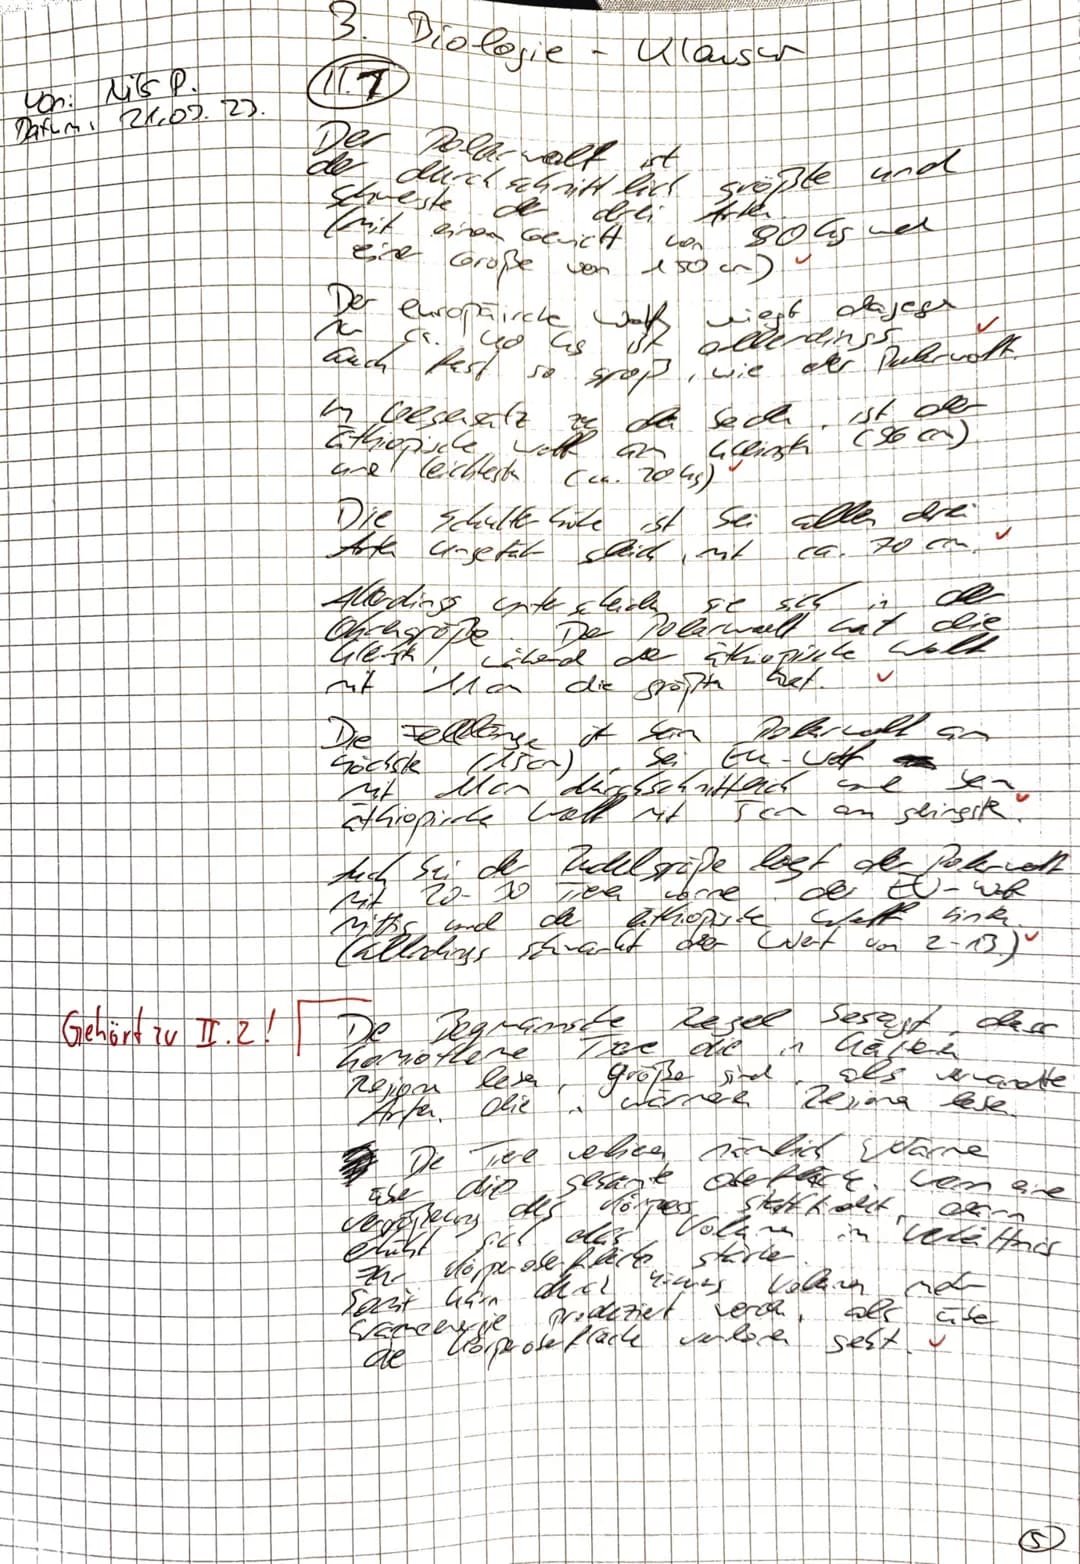 3. Biologie - Klausur
Von: Nils P.
Datum: 21.03.23.
II.1
Der Polarwolf ist
der durchschnittlich größte und
schwerste der drei Arten.
(mit einem Gewicht von 80 kg und
einer Größe von 150 cm)
Der europäische Wolf wiegt dagegen
nur ca. 40 kg ist allerdings
auch fast so groß, wie der Polarwolf.
Im Gegensatz zu den beiden, ist der
äthiopische Wolf am kleinsten (96 cm)
und leichtesten (ca. 20 kg)
Die Schulterhöhe ist bei allen drei
Arten ungefähr gleich, mit ca. 70 cm.
Allerdings unterscheiden sie sich in der
Ohrengröße. Der Polarwolf hat die
kleinsten, während der äthiopische Wolf
mit 11 cm die größten hat.
Die Felllänge ist beim Polarwolf am
höchsten (15cm), bei EU-Wolf
mit 11cm durchschnittlich und beim
äthiopische Wolf mit 5 cm am geringsten.
Auch bei der Rudelgröße liegt der Polarwolf
mit 20-30 Tieren vorne, der EU-Wolf
mittig und der äthiopische Wolf hinten
(allerdings schwankt der Wert von 2-13)
Gehört zu II.2!
Die Bergmannsche Regel besagt, dass
homoiotherme Tiere die in kälteren
Region leben, größer sind, als verwandte
Arten, die in wärmeren Regionen leben.
Die Tiere verlieren nämlich Wärme
über die gesamte Oberfläche. Wenn eine
Vergrößerung des Körpers stattfindet, dann
erhöht sich das Volumen im Verhältnis
zur Körperoberfläche stärker.
Somit kann durch Volumen mehr
Wärmeenergie produziert werden, als über
die Körperoberfläche verloren geht.
5